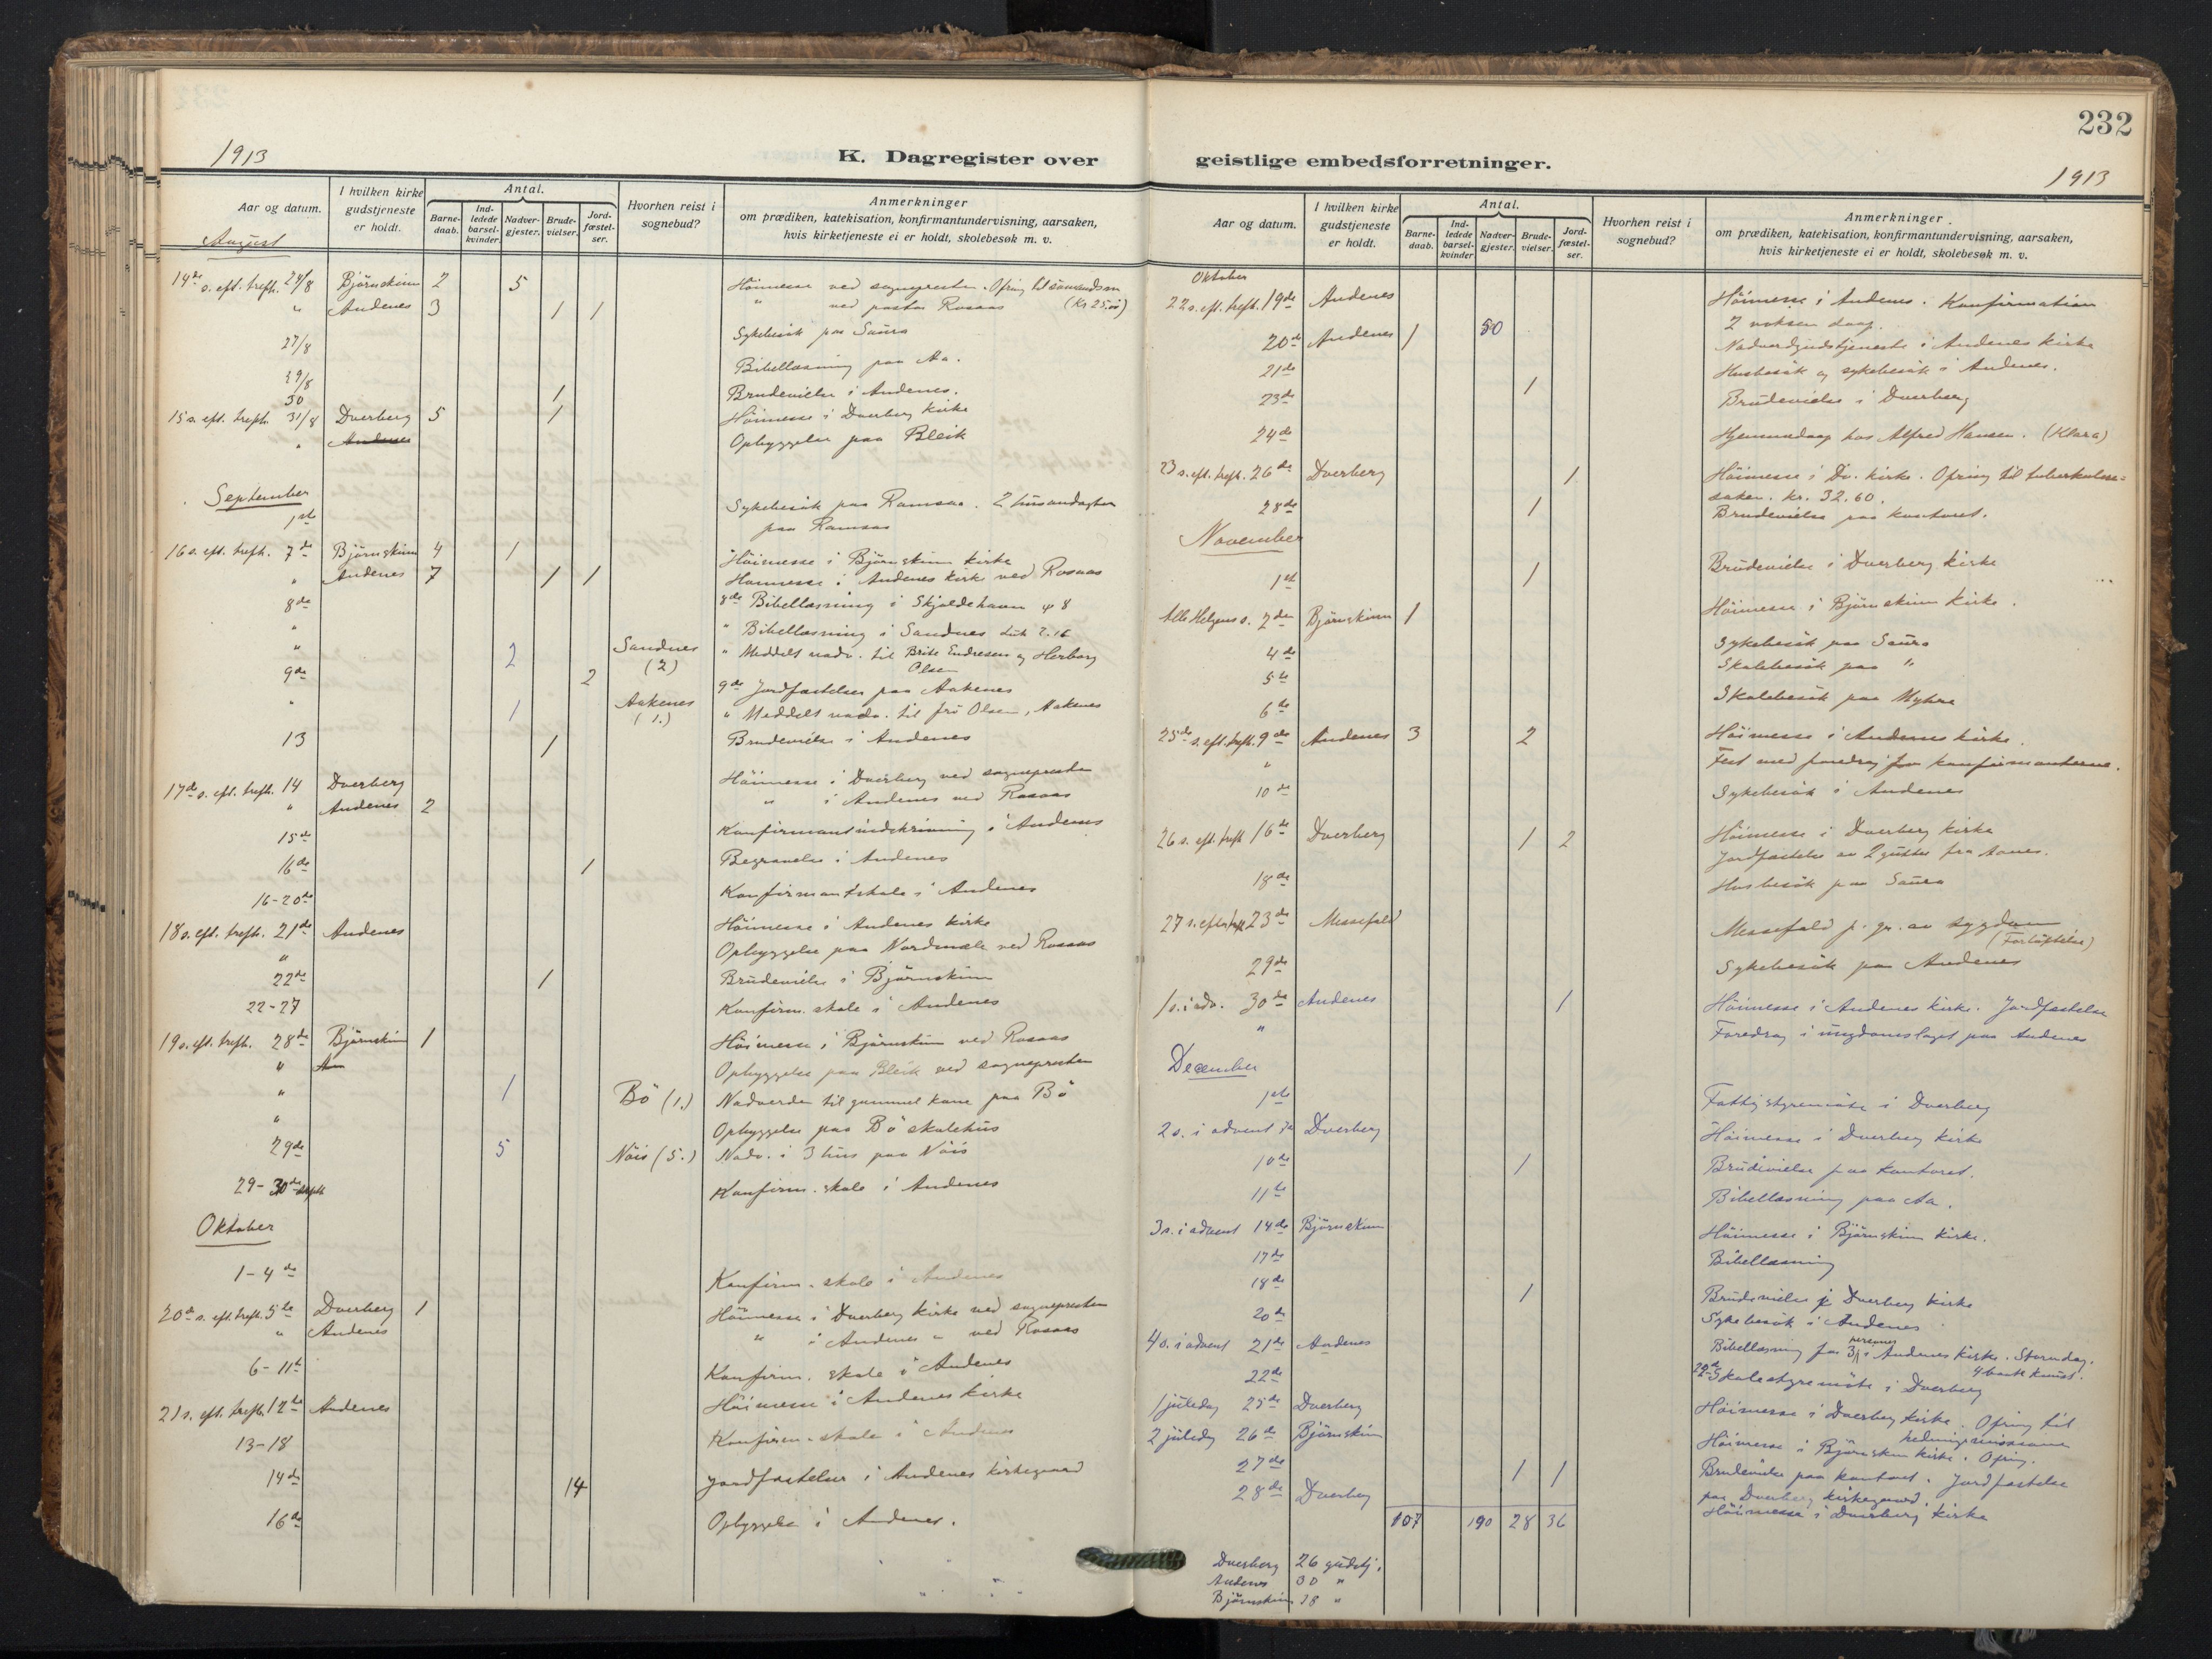 1913
K. Dagregister over
Aar og datum.
I hvilken kirke gudstjeneste er holdt.
Antal.
Barne-daab.
Ind-ledede barsel-kvinder.
Nadver-gjester.
Brude-vielser.
Jord-fæstel-ser.
Hvorhen reist i sognebud?
Anmerkninger
om prædiken, katekisation, konfirmantundervisning, aarsaken,
hvis kirketjeneste ei er holdt, skolebesøk m. v.
August
14de s. eft. trefh. 24/8 Bjørnskinn 2 5 Høimesse ved sognepresten. Ofring til
" Andenes 3 1 1 " ved pastor Rosaas (Kr 25.00)
27/8 Sykebesøk paa Saura
29/8 Bibellæsning paa Aa.
30 1 Brudevielse i Andenes.
15 s. eft. trefh. 31/8 Dverberg 5 1 Høimesse i Dverberg kirke
" Andenes Opbyggelse paa Bleik
September
1ste Sykebesøk paa Ramsaa. 2 husandagter
paa Ramsaa
16 s. eft. trefh. 7de Bjørnskinn 4 1 Høimesse i Bjørnskinn kirke
" Andenes 7 1 1 Høimesse i Andenes kirke ved Rosaas
8de 8de Bibellæsning i Skjoldehavn φ 8
" " Bibellæsning i Sandnes Luk 2.16
" 2 Sandnes (2) " Meddelt nadv. til Brite Endresen og Herborg
Olsen
9de 2 9de Jordfæstelser paa Aakenes
" 1 Aakenes (1.) " Meddelt nadv. til fru Olsen, Aakenes
13 1 Brudevielse i Andenes
17de s. eft. trefh. 14 Dverberg Høimesse i Dverberg ved sognepresten
" Andenes 2 " i Andenes ved Rosaas
15de Konfirmantindskrivning i Andenes
16de 1 Begravelse i Andenes
16-20de Konfirmantskole i Andenes
18 s. eft. trefh. 21de Andenes Høimesse i Andenes kirke
" Opbyggelse paa Nordmæle ved Rosaas
22de 1 Brudevielse i Bjørnskinn
22-27 Konfirm. skole i Andenes
19 s. eft. trefh. 28de Bjørnskinn 1 Høimesse i Bjørnskinn ved Rosaas
" An Opbyggelse paa Bleik ved sognepresten
" 1 Bö (1.) Nadverden til gammel kone paa Bö
" Opbyggelse paa Bö skolehus
29de 5 Nöis (5.) Nadv. i 3 hus paa Nöis
29-30de Konfirm. skole i Andenes
Oktober
1-4de Konfirm. skole i Andenes
20de s. eft. trefh. 5te Dverberg 1 Høimesse i Dverberg kirke ved sognepresten
" Andenes " i Andenes " ved Rosaas
6-11te Konfirm. skole i Andenes
21 s. eft. trefh. 12te Andenes Høimesse i Andenes kirke
13-18 Konfirm. skole i Andenes
14de 14 Jordfæstelser i Andenes kirkegaard
16de Opbyggelse i Andenes.
232
geistlige embedsforretninger.
1913
Aar og datum.
I hvilken kirke gudstjeneste er holdt.
Antal.
Barne-daab.
Ind-ledede barsel-kvinder
Nadver-gjester.
Brude-vielser.
Jord-fæstel-ser.
Hvorhen reist i sognebud?
Anmerkninger.
om prædiken, katekisation, konfirmantundervisning, aarsaken,
hvis kirketjeneste ei er holdt, skolebesøk m. v.
Oktober
22 s. eft. trefh. 19de Andenes Høimesse i Andenes. Konfirmation
2 voksen daap.
20de Andenes 1 50 Nadverdgudstjeneste i Andenes kirke
21de Husbesøk og sykebesøk i Andenes.
23de 1 Brudevielse i Dverberg
24de Hjemmedaap hos Alfred Hansen. (Klara)
23 s. eft. trefh. 26de Dverberg 1 Høimesse i Dv. kirke. Ofring til tuberkulose-
saken. kr. 32.60.
28de 1 Brudevielse paa kontoret.
November
1ste 1 Brudevielse i Dverberg kirke
Alle Helgens s. 2den Bjørnskinn 1 Høimesse i Bjørnskinn kirke.
4de Sykebesøk paa Saura
5te Skolebesøk paa "
6te Skolebesøk paa Myhre
25de s. eft. trefh. 9de Andenes 3 2 Høimesse i Andenes kirke.
" Fest med foredrag for konfirmanterne.
10de Sykebesøk i Andenes
26 s. eft. trefh. 16de Dverberg 1 2 Høimesse i Dverberg kirke
Jordfæstelse av 2 gutter fra Aanes.
18de Husbesøk paa Saura
27 s. eft. trefh. 23de Messefald Messefald p. gr. av sygdom
29de Sykebesøk paa Andenes
1 s. i adv. 30de Andenes 1 Høimesse i Andenes kirke. Jordfæstelse
" Foredrag i ungdomslaget paa Andenes
December
1ste Fattigstyremøte i Dverberg
2 s. i advent 7de Dverberg Høimesse i Dverberg kirke
10de 1 Brudevielse paa kontoret.
11te Bibellæsning paa Aa.
3 s. i advent 14de Bjørnskinn Høimesse i Bjørnskinn kirke.
17de Bibellæsning
18de 1 Brudevielse i Dverberg kirke
20de Sykebesøk i Andenes
4 s. i advent 21de Andenes Bibellæsning for 3 personer i Andenes kirke. Stormdag.
22de 22de Skolestyremøte i Dverberg
1 juledag 25de Dverberg Høimesse i Dverberg kirke. Ofring til
hedningemissionen
2 juledag 26de Bjørnskinn Høimesse i Bjørnskinn kirke. Ofring.
27de 1 1 Brudevielse paa kontoret. Jordfæstelse
paa Dverberg kirkegaard.
28de Dverberg Høimesse i Dverberg kirke
107 190 28 36
Dverberg 26 gudstj.
Andenes 30 "
Bjørnskinn 18 "